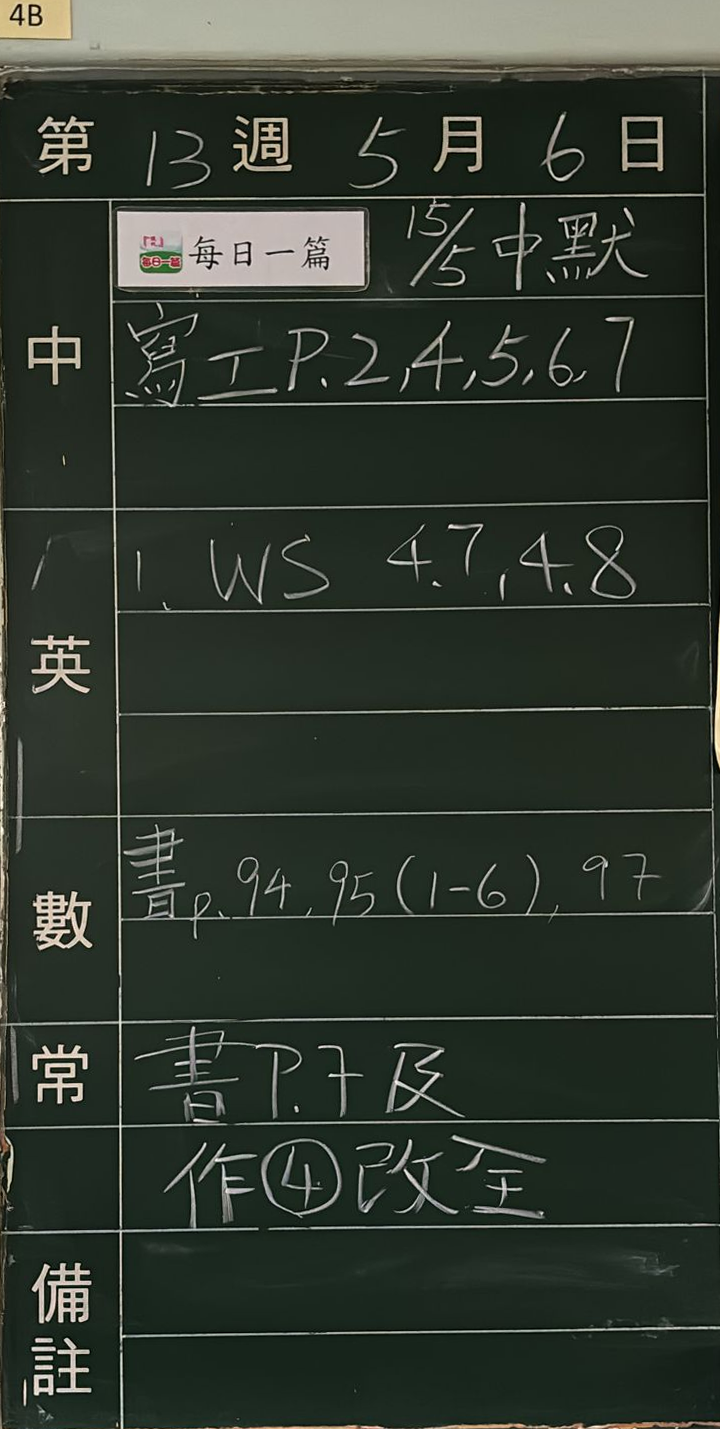 4B
第 13 週 5 月 6 日
中
每日一篇 每日一篇 15/5 中默
寫工 P.2,4,5,6,7
英
1. WS 4.7,4.8
數
書p.94,95(1-6),97
常
書P.7及
作④改全
備註